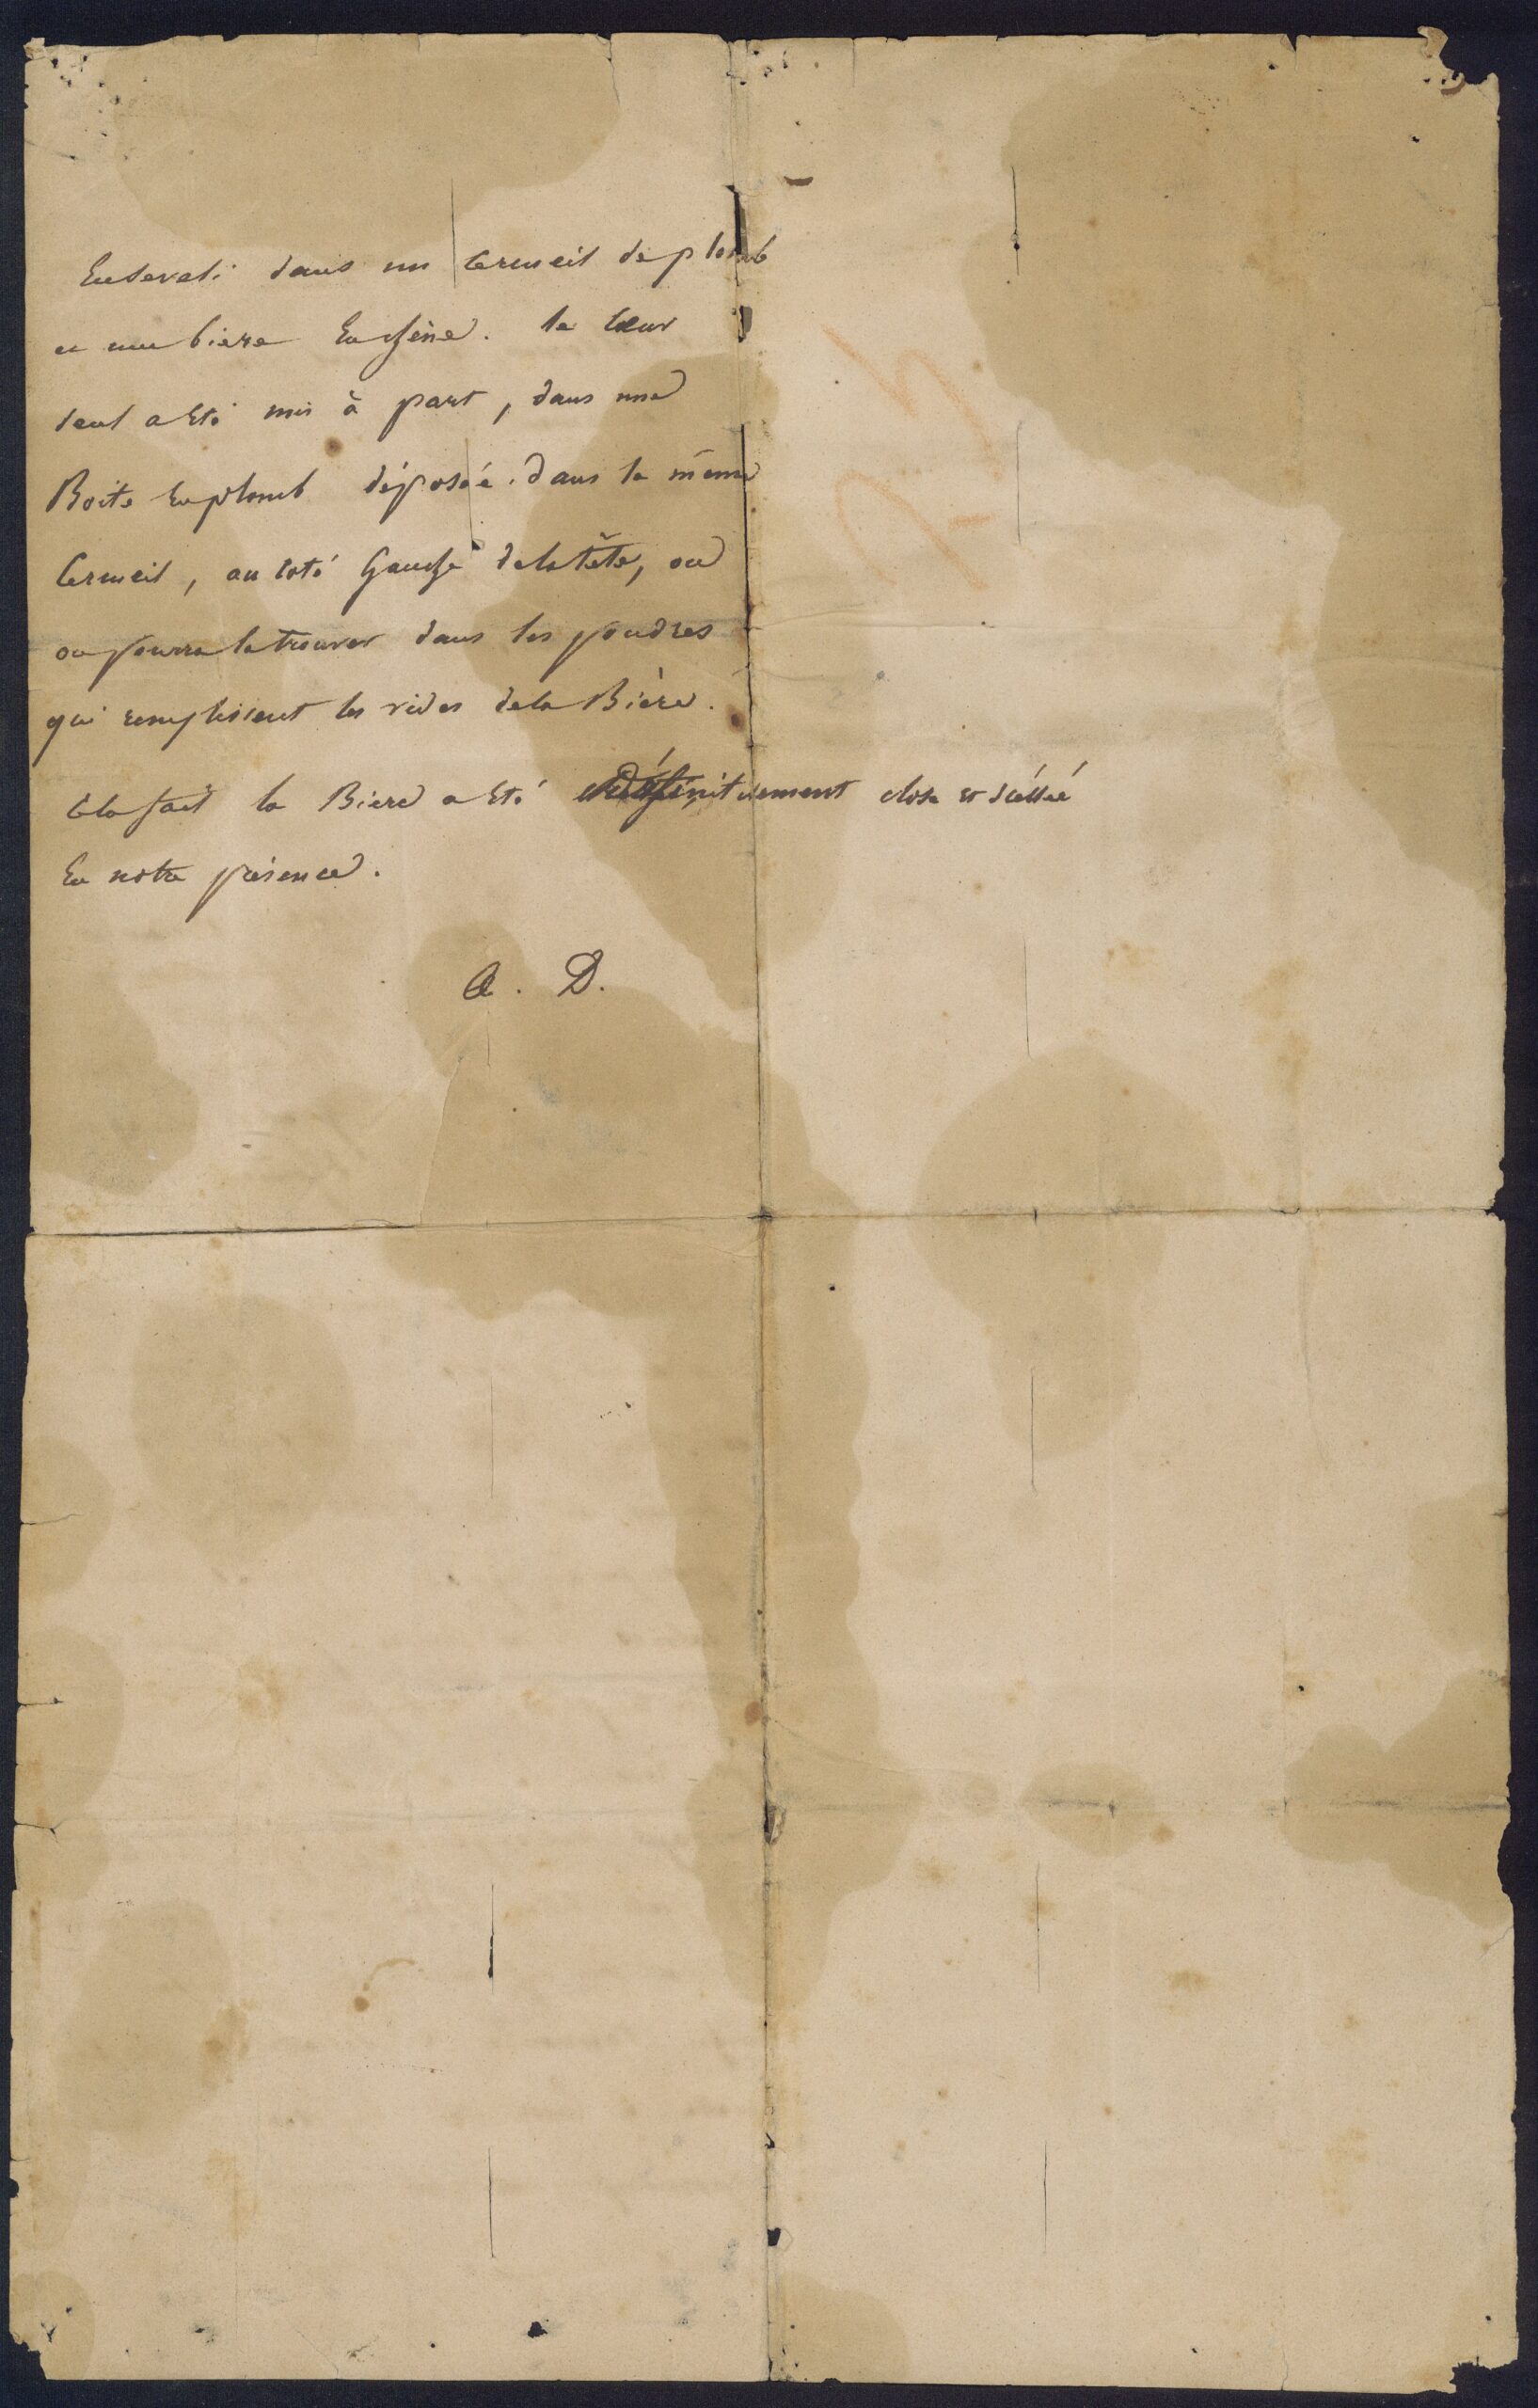 Enseveli dans un Cercueil de plomb
et une bière En chêne. le Cœur
seul a Eté mis à part, dans une
Boite En plomb déposée dans le même
Cercueil, au coté Gauche de la tête, où
on pourra le trouver dans les poudres
qui remplissent les vides de la Bière.
Cela fait la Bière a Eté définitivement close et scéllée
En notre présence.
A. D.